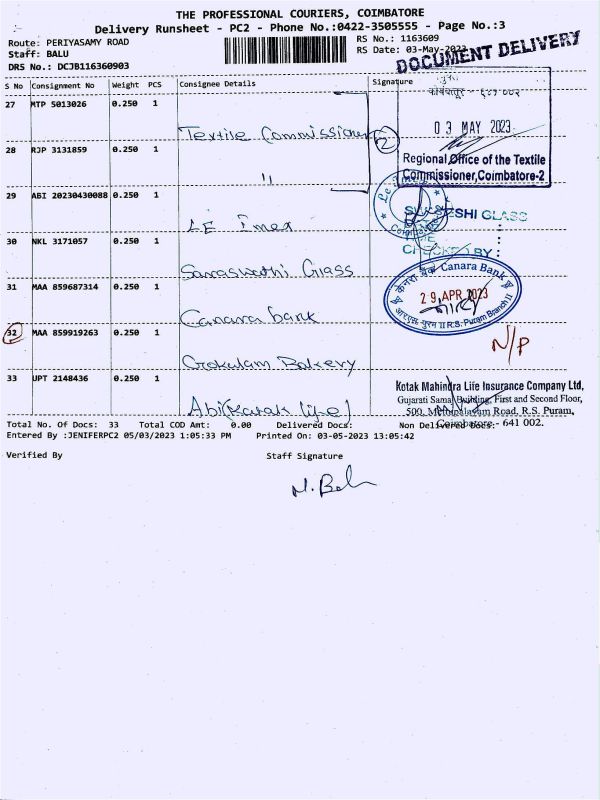 THE PROFESSIONAL COURIERS, COIMBATORE
Delivery Runsheet - PC2 - Phone No.:0422-3505555 - Page No.:3
Route: PERIYASAMY ROAD
RS No.: 1163609
Staff: BALU
RS Date: 03-May-2023
DRS No.: DCJB116360903
DOCUMENT DELIVERY
S No Consignment No Weight PCS Consignee Details Signature
27 MTP 5013026 0.250 1
03 MAY 2023
Textile Commissioner 2
28 RJP 3131859 0.250 1
Regional Office of the Textile
Commissioner, Coimbatore-2
"
29 ABI 20230430088 0.250 1
LE Imex
ESHI GLASS
30 NKL 3171057 0.250 1
CHECKED BY :
Saraswathi Glass
केनरा बैंक Canara Bank
31 MAA 859687314 0.250 1
29 APR 2023
Canara bank
R.S. Puram Branch II
32 MAA 859919263 0.250 1
N/P
Gokulam Bakery
33 UPT 2148436 0.250 1
Kotak Mahindra Life Insurance Company Ltd,
Gujarati Samaj Building, First and Second Floor,
Abi(Kotak life)
500, Mettupalayam Road, R.S. Puram,
Coimbatore - 641 002.
Total No. Of Docs: 33 Total COD Amt: 0.00 Delivered Docs: Non Delivered Docs:
Entered By :JENIFERPC2 05/03/2023 1:05:33 PM Printed On: 03-05-2023 13:05:42
Verified By Staff Signature